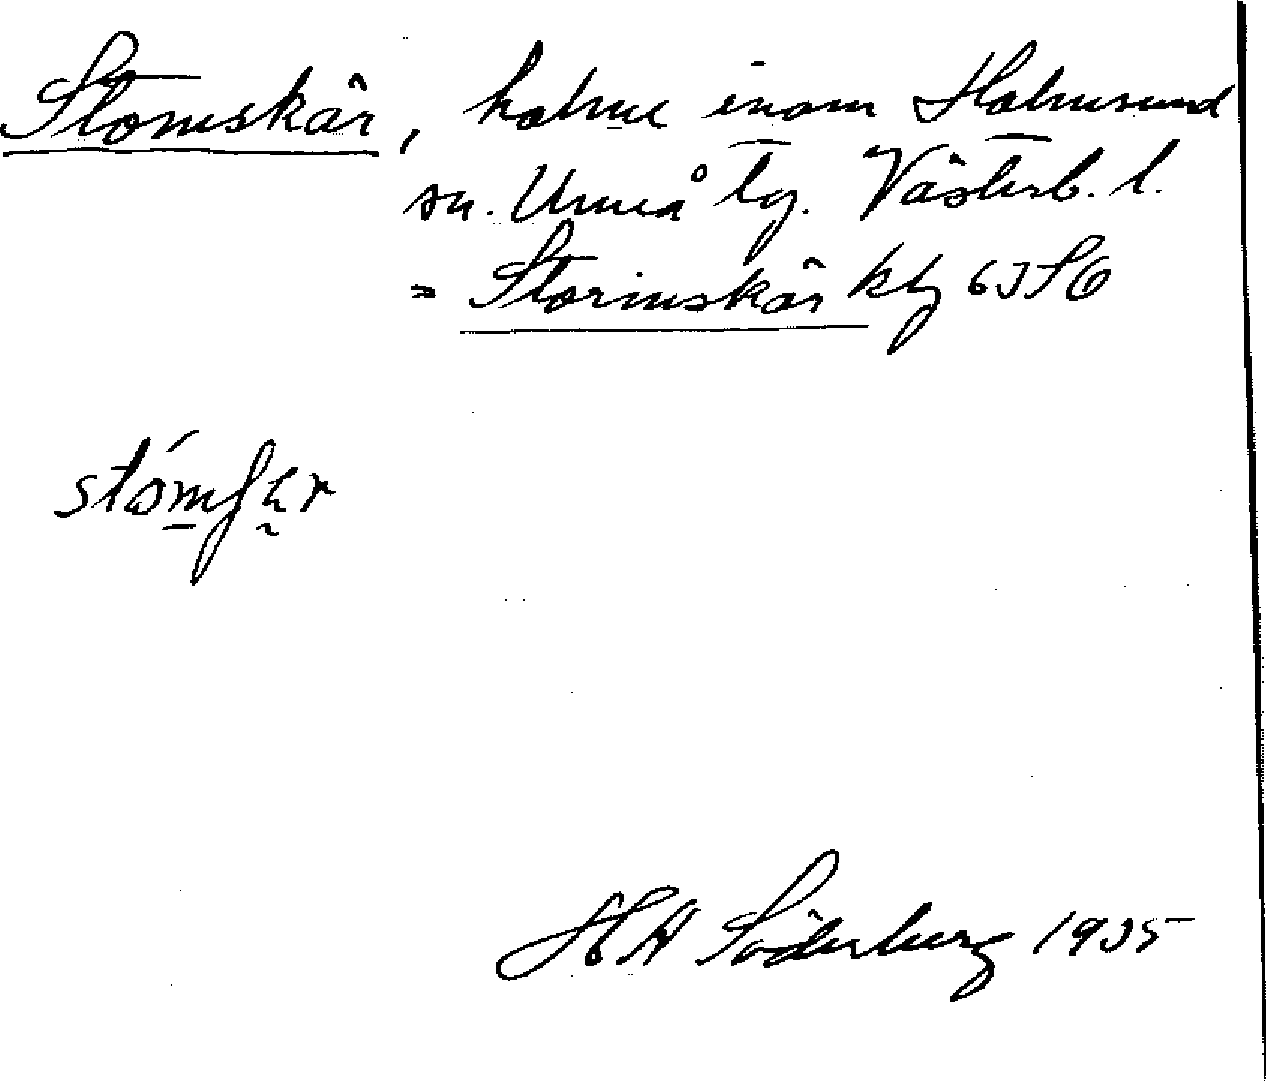 Stomskär, holme inom Holmsund
sn. Umeå tg. Västerb. l.
= Stormskär kbl 63 SO
H A Söderberg 1935